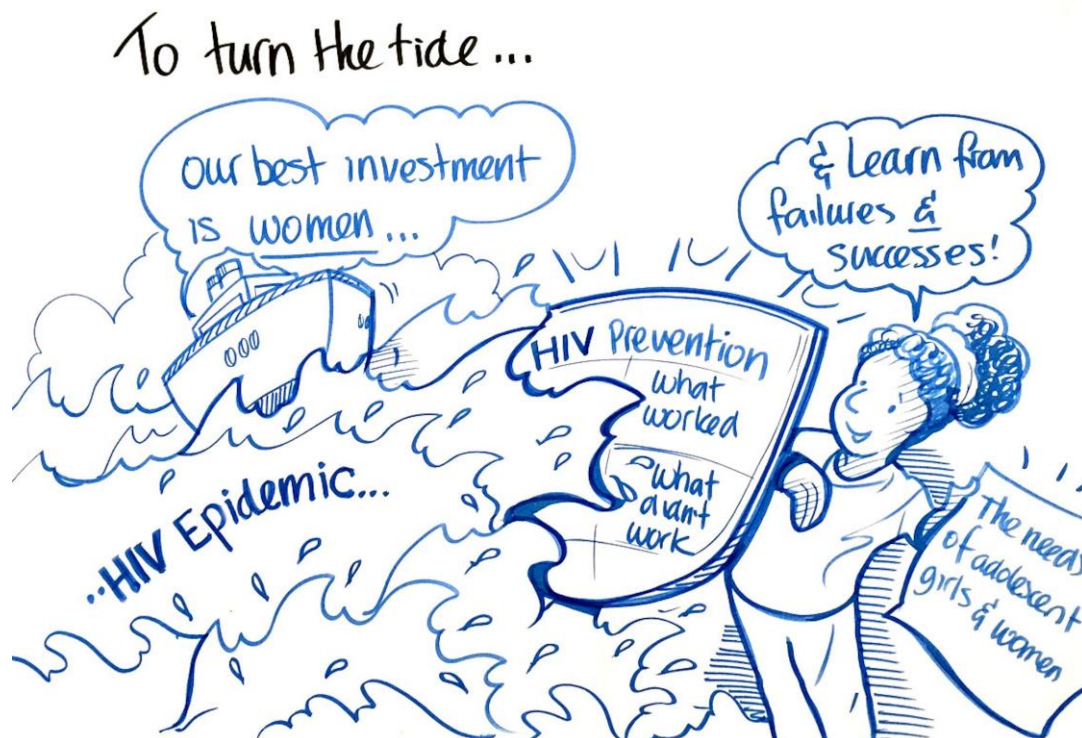 To turn the tide...
our best investment
is women...
& Learn from
failures &
successes!
HIV Prevention
what
worked
what
didn't
work
..HIV Epidemic...
The needs
of adolescent
girls & women